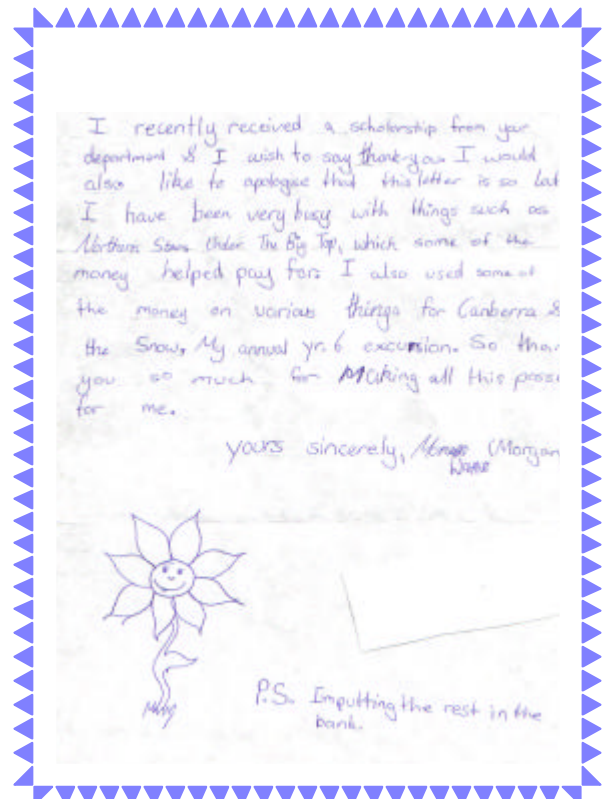 I recently received a scholarship from your
department & I wish to say thankyou I would
also like to apologise that this letter is so Lat
I have been very busy with things such as
Northern Stars Under The Big Top, which some of the
money helped pay for. I also used some of
the money on various things for Canberra &
the Snow, My annual yr. 6 excursion. So than
you so much for Making all this poss
for me.
yours sincerely, (Morgan
P.S. Imputting the rest in the
bank.